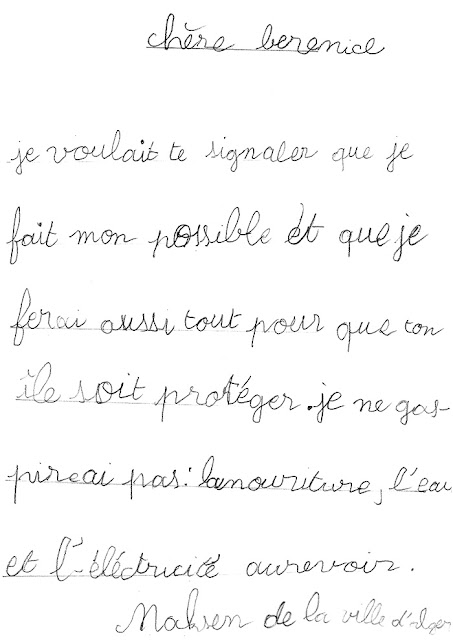 chère berenice
je voulait te signaler que je
fait mon possible et que je
ferai aussi tout pour que ton
île soit protéger. je ne gas-
pireai pas: la nouriture, l'eau
et l'éléctricité aurevoir.
Mahsen de la ville d'alger